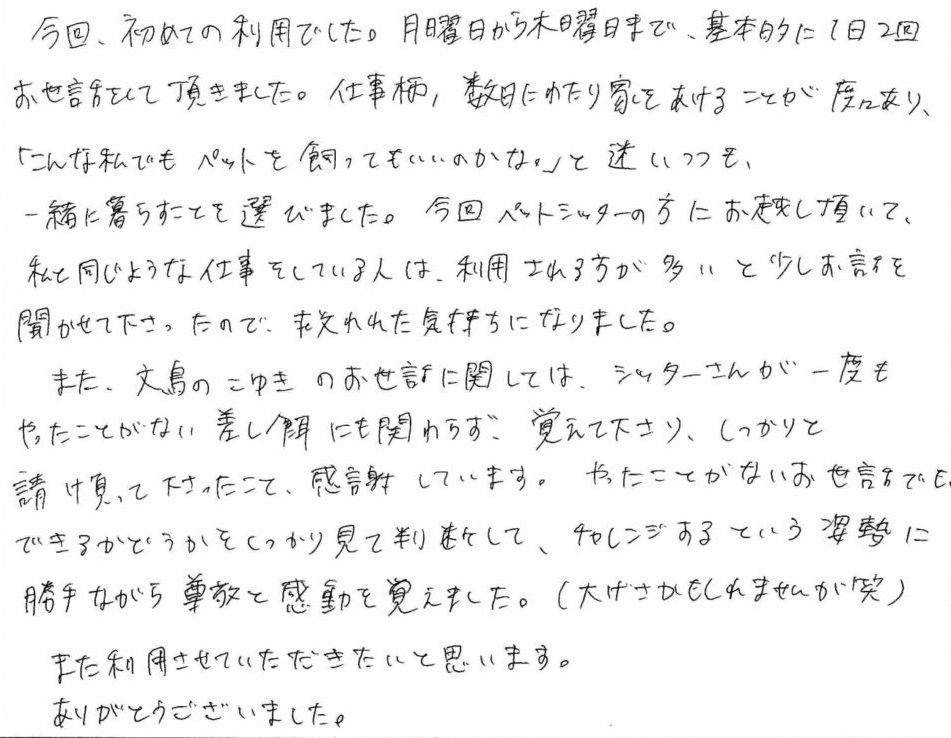 今回、初めての利用でした。月曜日から木曜日まで、基本的に1日2回
お世話をして頂きました。仕事柄、数日にわたり家をあけることが度々あり、
「こんな私でもペットを飼ってもいいのかな。」と迷いつつも、
一緒に暮らすことを選びました。今回ペットシッターの方にお越し頂いて、
私と同じような仕事をしている人は、利用される方が多いと少しお話を
聞かせて下さったので、救われた気持ちになりました。
また、文鳥のこゆきのお世話に関しては、シッターさんが一度も
やったことがない差し餌にも関わらず、覚えて下さり、しっかりと
請け負って下さったこと、感謝しています。やったことがないお世話でも、
できるかどうかをしっかり見て判断して、チャレンジするという姿勢に
勝手ながら尊敬と感動を覚えました。(大げさかもしれませんが笑)
また利用させていただきたいと思います。
ありがとうございました。